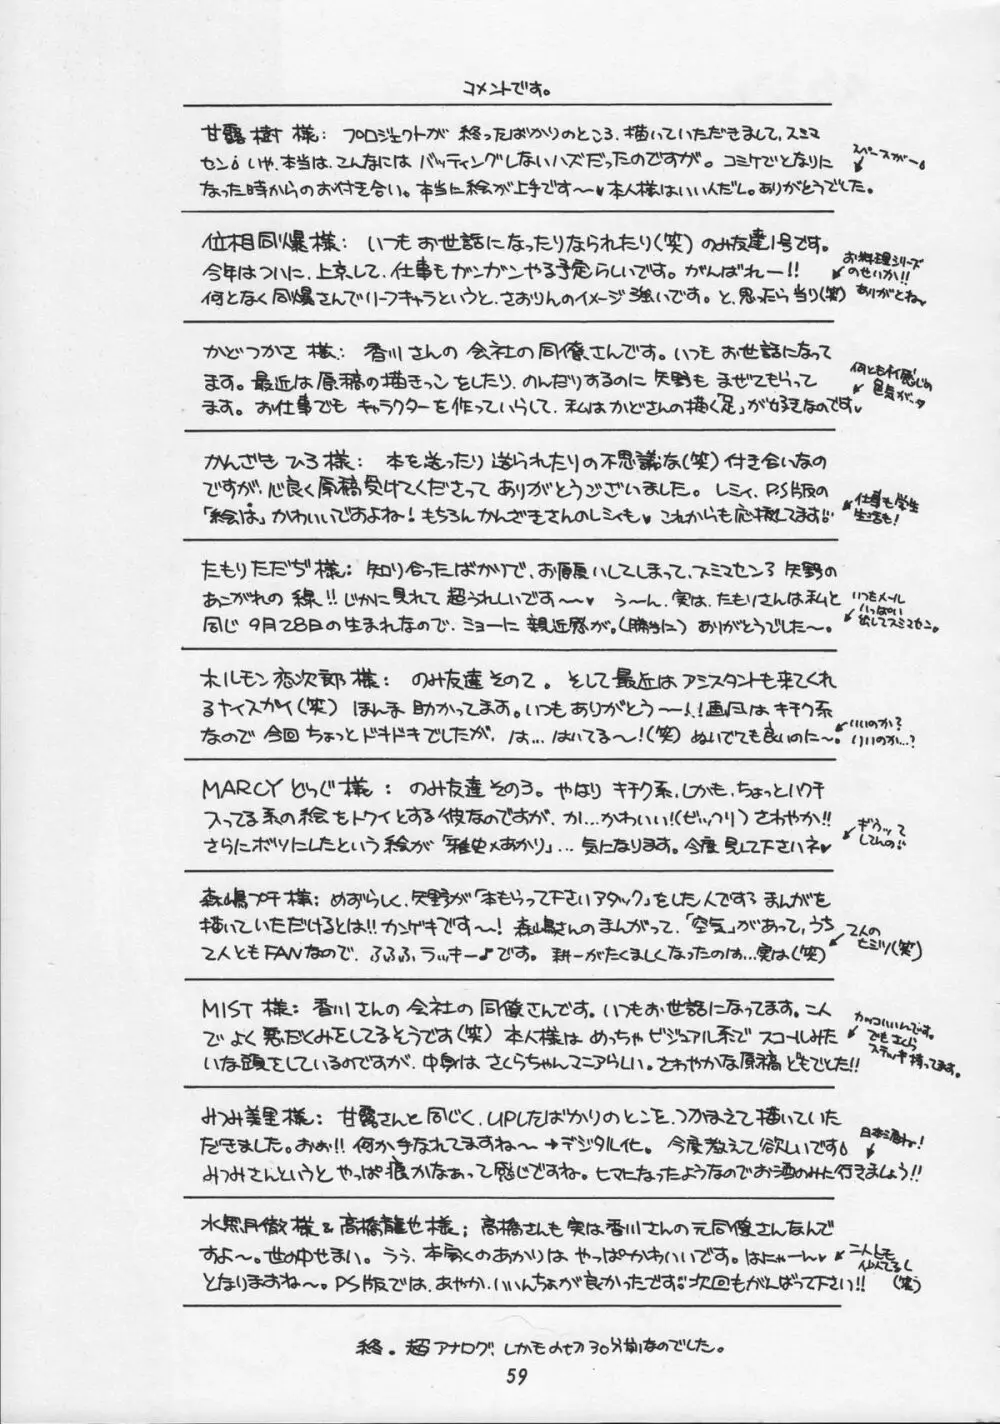 コメントです。
甘露樹様： プロジェクトが終ったばかりのところ、描いていただきまして、スミマ
セン。いや、本当は、こんなにはバッティングしないハズだったのですが。コミケでとなりに
なった時からのお付き合い。本当に絵が上手です〜♥本人様はいい人だし。ありがとうでした。
スペースがー。
位相同爆様： いつもお世話になったりなられたり(笑) のみ友達1号です。
今年はついに、上京して、仕事もガンガンやる予定らしいです。がんばれー!!
何となく同爆さんでリーフキャラというと、さおりんのイメージ強いです。と、思ったら当り(笑)
お料理シリーズ
のせいか!!
ありがとね♥
かどつかさ様： 香川さんの会社の同僚さんです。いつもお世話になって
ます。最近は原稿の描きっこをしたり、のんだりするのに矢野もまぜてもらって
ます。お仕事でもキャラクターを作っていらして、私はかどさんの描く「足」が好きなのです♥
何とも
色気が
かんざきひろ様： 本を送ったり送られたりの不思議な(笑)付き合いなの
ですが、心良く原稿受けてくださってありがとうございました。レミィ、P.S版の
「絵は」かわいいですよね！もちろんかんざきさんのレミィも♥これからも応援してます!!
仕事も学生
生活も!
たもりただぢ様： 知り合ったばかりで、お願いしてしまって、スミマセン 矢野の
あこがれの線!! じかに見れて超うれしいです〜〜♥ う〜ん、実は、たもりさんは私と
同じ9月28日の生まれなので、ミョーに親近感が。(勝手に) ありがとうでした〜。
いつもメール
いっぱい
出してスミマセン。
ホルモン恋次郎様： のみ友達その2。そして最近はアシスタントも来てくれ
るナイスガイ(笑) ほんま助かってます。いつもありがとう〜!! 画風はキチク系
なので今回ちょっとドキドキでしたが、は…はいてる〜!(笑) ぬいでても良いのに〜。
いいのか?
いいのか…?
MARCYどっぐ様： のみ友達その3。やはりキチク系、しかも、ちょっとハクチ
入ってる系の絵をトクイとする彼なのですが、か…かわいい!(ビックリ) さわやか!!
さらにボツにしたという絵が「雅史×あかり」…気になります。今度見して下さいネ♥
ギュッて
してんの!!
森嶋プチ様： めずらしく、矢野が「本もらって下さいアタック」をした人です まんがを
描いていただけるとは!! カンゲキです〜! 森嶋さんのまんがって、「空気」があって、うち
2人ともFANなので、ふふふラッキー♪です。耕一がたくましくなったのは…実は(笑)
2人の
ヒミツ(笑)
MIST様： 香川さんの会社の同僚さんです。いつもお世話になってます。二人
でよく悪だくみをしてるそうです(笑) 本人様はめっちゃビジュアル系でスコールみた
いな頭をしているのですが、中身はさくらちゃんマニアらしい。さわやかな原稿どもでした!!
カッコいいんです。
でもさくら
ステッキ持ってます。
みつみ美里様： 甘露さんと同じく、UPしたばかりのとこを、つかまえて描いていた
だきました。おぉ!! 何か手なれてますね〜→デジタル化。今度教えて欲しいです
みつみさんというとやっぱ痕かなぁって感じですね。ヒマになったようなのでお酒のみに行きましょう!!
日本酒ね!
水無月徹様&高橋龍也様； 高橋さんも実は香川さんの元同僚さんなんで
すよ〜。世の中せまい。うぅ、本家のあかりはやっぱかわいいです。はにゃーん♥
となりますね〜。PS版では、あやか、いいんちょが良かったです。次回もがんばって下さい!!
二人とも
似てるし
(笑)
終。超アナログ、しかも〆切30分前なのでした。
59